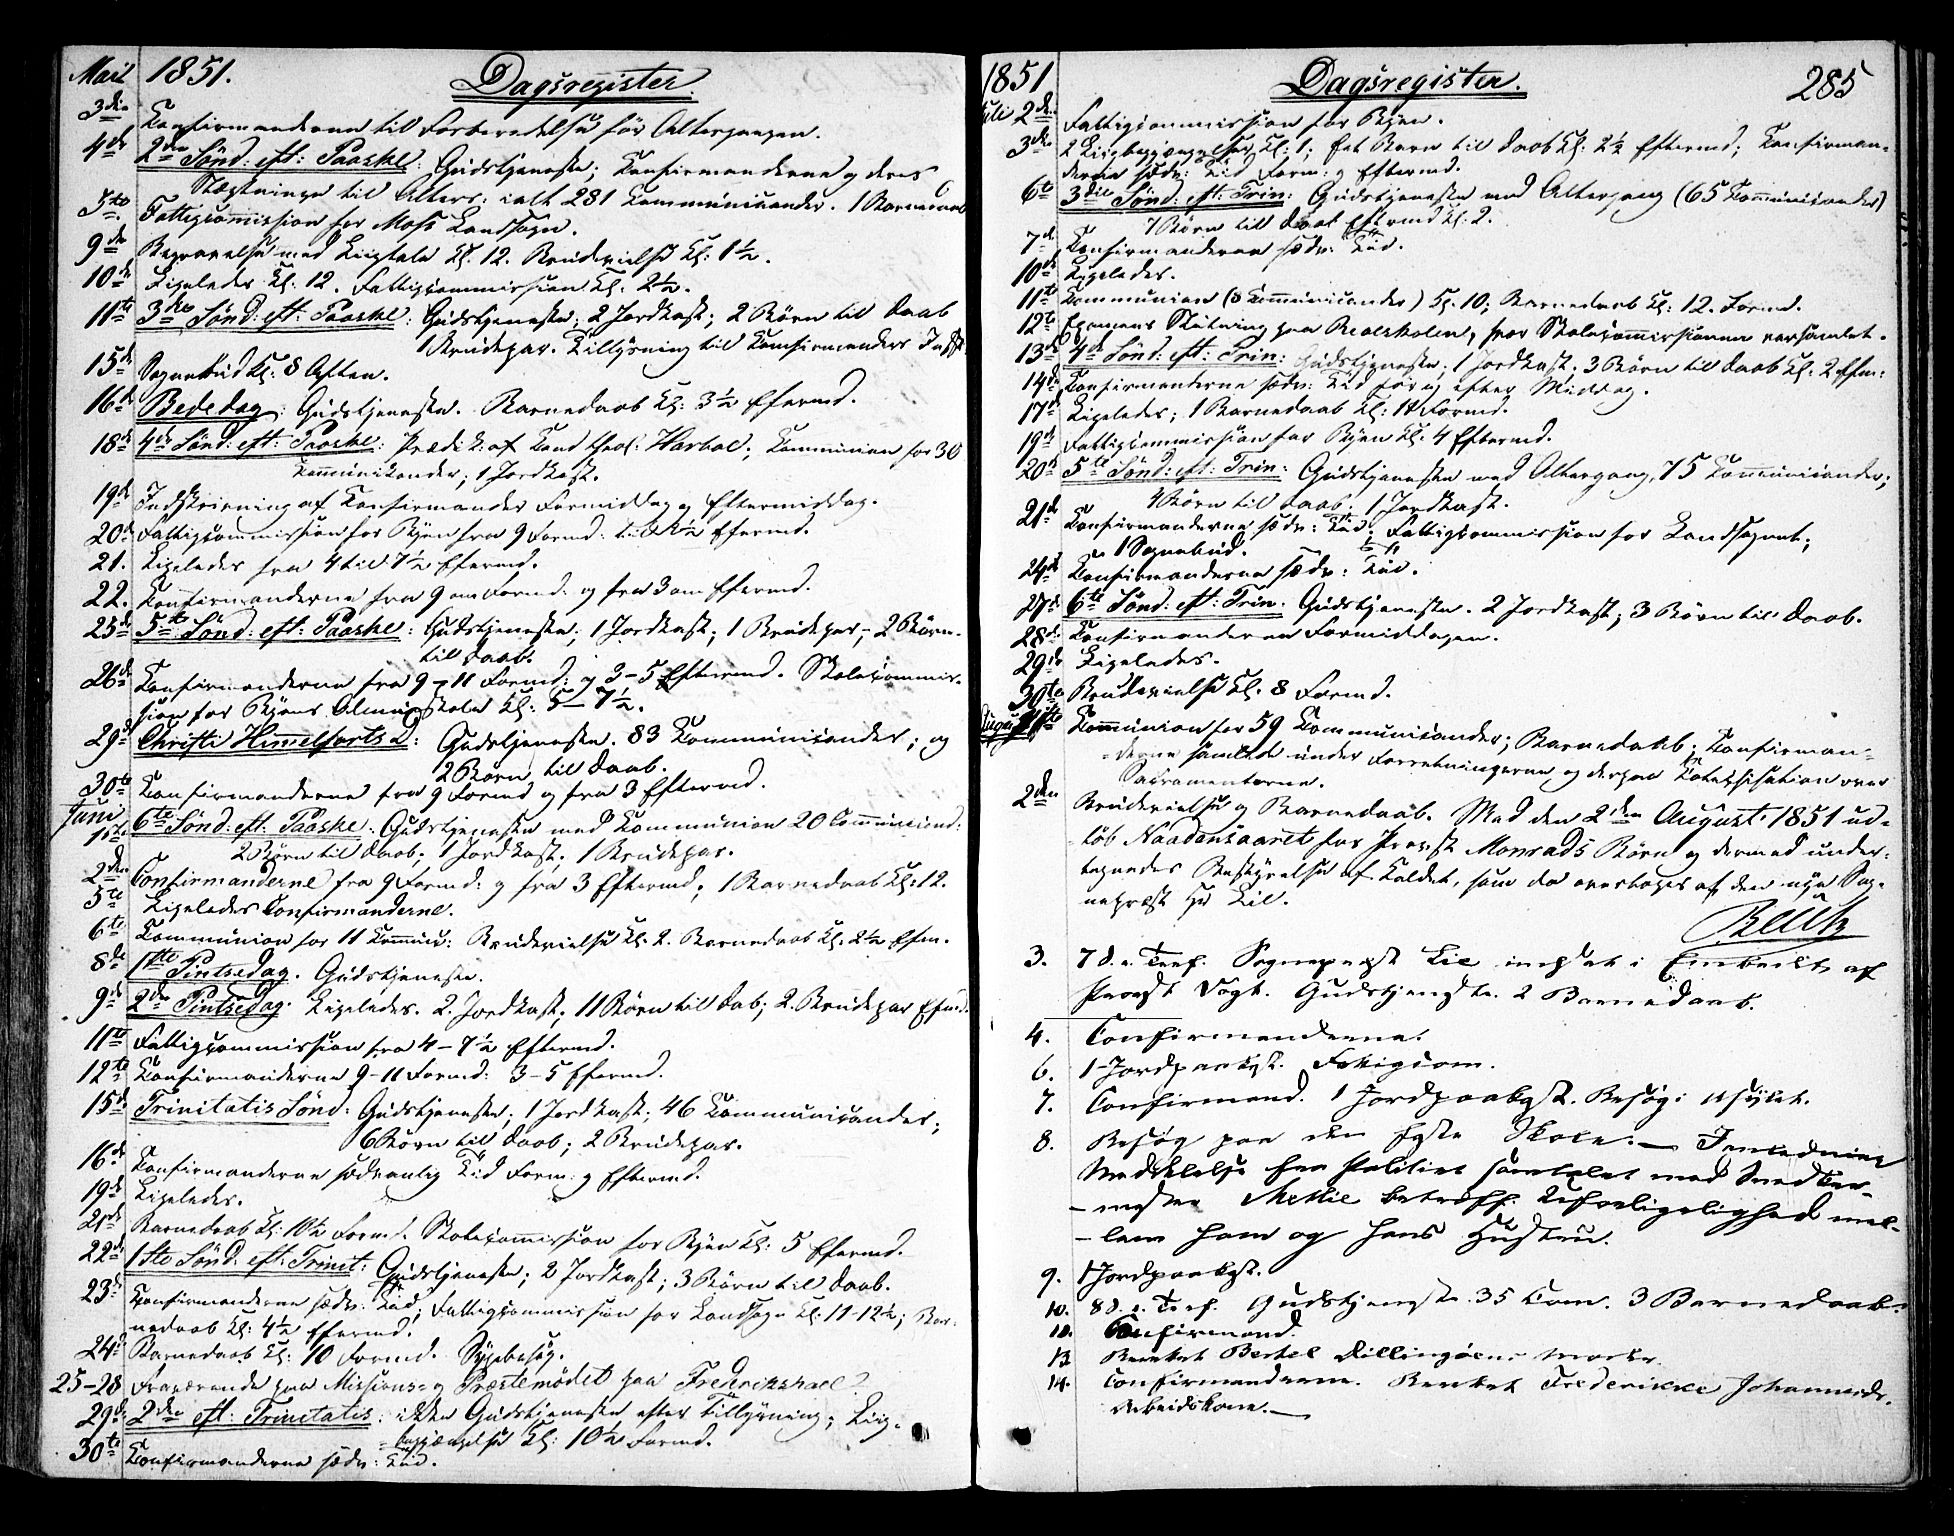 Mai 1851. Dagsregister.
3die Confirmanderne til Forberedelse før Altergangen.
4de 2den Sönd: eft: Paaske: Gudstjeneste; Confirmanderne og deres
Slægtninge til Alters: ialt 281 Communicander. 1 Barnedaab
5te Fattigcommission for Moss Landsogn.
9de Begravelse med Liigtale Kl. 12. Brudevielse Kl: 1½.
10de Ligeledes Kl: 12. Fattigcommission Kl: 2½.
11te 3die Sönd: eft: Paaske: Gudstjeneste; 2 Jordkast; 2 Børn til Daab
1 Brudepar. Tillysning til Confirmanders
15de Sognebud Kl: 8 Aften.
16de Bededag: Gudstjeneste. Barnedaab Kl: 3½ Efermd.
18de 4de Sönd: eft: Paaske: Prædik: af Cand theol: Harboe; Communion for 30
Communicander; 1 Jordkast.
19de Indskrivning af Confirmander Formiddag og Eftermiddag.
20de Fattigcommission for Byen fra 9 Formd: til Efermd.
21. Ligeledes fra 4 til 7½ Efermd.
22. Confirmanderne fra 9 om Formd: og fra 3 om Efermd.
25de 5te Sönd: eft: Paaske: Gudstjeneste; 1 Jordkast; 1 Brudepar; 2 Børn
til Daab.
26de Confirmanderne fra 9–11 Formd: og 3–5 Eftermd. Skolecommis-
sion for Byens Almueskole Kl: 5–7½.
29de Christi Himmelfarts D: Gudstjeneste. 83 Communicander; og
2 Børn til Daab.
30te Confirmanderne fra 9 Formd og fra 3 Eftermd.
Juni
1ste 6te Sönd: eft: Paaske: Gudstjeneste med Communion 20 Communicand:
2 Børn til Daab; 1 Jordkast; 1 Brudepar.
2den Confirmanderne fra 9 Formd: og fra 3 Eftermd; 1 Barnedaab Kl: 12.
5te Ligeledes Confirmanderne.
6te Communion for 11 Commun: Brudevielse Kl. 2. Barnedaab Kl. 2½ Efm.
8de 1ste Pintsedag. Gudstjeneste.
9de 2den Pintsedag. Ligeledes. 2. Jordkast; 11 Børn til Dab; 2. Brudepar Efmd.
11te Fattigcommission fra 4–7½ Eftermd.
12te Confirmanderne 9–11 Formd: 3–5 Efermd.
15de Trinitatis Sönd: Gudstjeneste; 1 Jordkast; 46 Communicander;
6 Børn til Daab; 2 Brudepar.
16de Confirmanderne sædvanlig Tid Form: og Eftermd.
19de Ligeledes.
21de Barnedaab Kl: 10½ Form. Skolecommission for Byen Kl: 5 Efermd.
22de 1ste Sönd: eft: Trinit: Gudstjeneste; 2 Jordkast; 3 Børn til Daab.
23de Confirmanderne sædv: Tid; Fattigcommission for Landsogn Kl: 11-12½; Bar-
nedaab Kl: 4½ Efermd.
24de Barnedaab Kl: 10 Formd. Sygebesøg.
25–28 Fraværende paa Missions- og Præstemødet paa Frederikshald.
29de 2den eft: Trinitatis: ikke Gudstjeneste efter Tillysning; Liig-
begjængelse Kl: 10½ Formd.
30te Confirmanderne sædv: Tid.
1851 Dagsregister. 285
Juli 2den Fattigcommission for Byen.
3die 2 Liigbegjængelser Kl: 1; Eet Barn til Daab Kl: 2½ Eftermd; Confirman-
derne sædv: Tid Form: og Eftermd.
6te 3die Sönd: eft: Trin: Gudstjeneste med Altergang (65 Communicander)
7 Børn til Daab Eftermd Kl: 2.
7de Confirmanderne sædv: Tid.
10de Ligeledes.
11te Communion (8 Communicander) Kl. 10; Barnedaab Kl: 12. Formd.
12te Examens Slutning paa Realskolen, hvor Skolecommissionen var samlet.
13de 4de Sönd: eft: Trin: Gudstjeneste; 1 Jordkast; 3 Børn til Daab Kl: 2 Efm:
14de Confirmanderne sædv: Tid før og efter Middag.
17de Ligeledes; 1 Barnedaab Kl: 11 Formd.
19de Fattigcommission for Byen Kl. 4 Eftermd.
20de 5te Sönd: eft: Trin: Gudstjeneste med Altergang, 75 Communicander;
4 Børn til Daab; 1 Jordkast.
21de Confirmanderne sædv: Tid; Fattigcommission for Landsognet;
1 Sognebud.
24de Confirmanderne sædv: Tid.
27de 6te Sönd: eft: Trin. Gudstjeneste. 2 Jordkast; 3 Børn til Daab.
28de Confirmanderne Formiddagen.
29de Ligeledes.
30te Brudevielse Kl. 8 Formd.
August 1ste Communion for 59 Communicander; Barnedaab; Confirman-
derne samlede under Forretningerne og derpaa Katekisation over
Sakramenterne.
2den Brudevielse og Barnedaab. Med den 2den August 1851 ud-
löb Naadensaaret for Provst Monrads Børn og dermed under-
tegnedes Bestyrelse af Kaldet, som da overtages af den nye Sog-
nepræst Hr Lie.
3. 7 S. e. Tref. Sognepræst Lie indsat i Embedet af
Provst Vogt. Gudstjenste. 2 Barnedaab.
4. Confirmanderne.
6. 1 Jordpaakst. Fatigcom.
7. Confirmand. 1 Jordpaakst. Besøg i Asylet.
8. Besøg paa den Skole. —
Meddelelse fra Politiet samtalet med
-mester betreff. Uforligelighed mel-
-lem ham og hans Hustru.
9. 1 Jordpaakst.
10. 8 S. e. Tref. Gudstjenste. 35 Com. 3 Barnedaab.
Confirmand.
13 Berettet Bertel Dillingöens Moder.
14. Confirmanderne. Berettet Frederikke
Arbeidskone. —